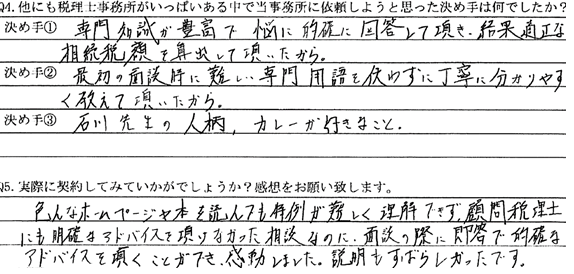 Q4.他にも税理士事務所がいっぱいある中で当事務所に依頼しようと思った決め手は何でしたか?
決め手① 専門知識が豊富で悩に的確に回答して頂き、結果適正な
相続税額を算出して頂いたから。
決め手② 最初の面談時に難しい専門用語を使わずに丁寧に分かりやす
く教えて頂いたから。
決め手③ 石川先生の人柄,カレーが好きなこと。
Q5.実際に契約してみていかがでしょうか?感想をお願い致します。
色んなホームページや本を読んでも特例が難しく理解できず、顧問税理士
にも明確なアドバイスを頂けなかった相談なのに、面談の際に即答で的確な
アドバイスを頂くことができ、感動しました。説明もすばらしかったです。